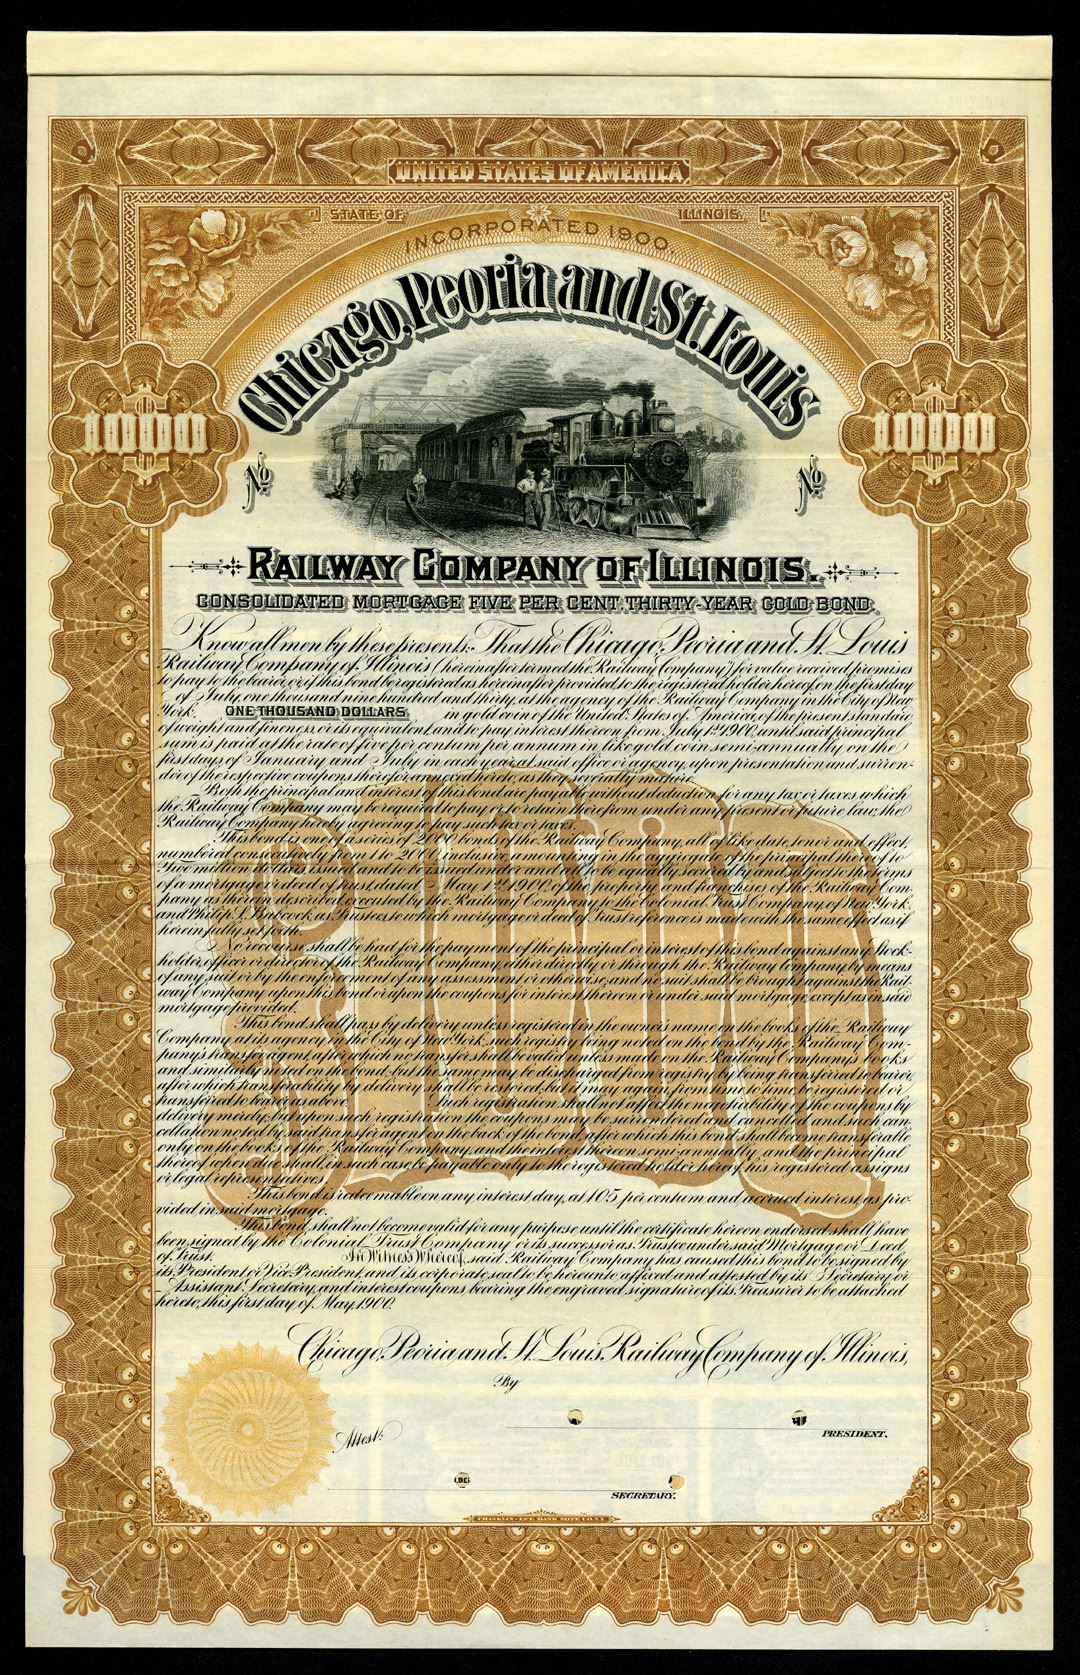 UNITED STATES OF AMERICA
STATE OF ILLINOIS.
INCORPORATED 1900
Chicago, Peoria and St. Louis
$1000 $1000
No. No.
RAILWAY COMPANY OF ILLINOIS.
CONSOLIDATED MORTGAGE FIVE PER CENT. THIRTY-YEAR GOLD BOND.
Know all men by these presents:- That the Chicago, Peoria and St. Louis
Railway Company of Illinois (hereinafter termed the Railway Company) for value received promises
to pay to the bearer, or if this bond be registered as hereinafter provided, to the registered holder hereof, on the first day
of July, one thousand nine hundred and thirty, at the agency of the Railway Company in the City of New
York, ONE THOUSAND DOLLARS in gold coin of the United States of America, of the present standard
of weight and fineness, or its equivalent, and to pay interest thereon from July 1st 1900, until said principal
sum is paid at the rate of five per centum per annum in like gold coin semi-annually on the
first days of January and July in each year at said office or agency, upon presentation and surren-
der of the respective coupons therefor annexed hereto, as they severally mature.
Both the principal and interest of this bond are payable without deduction for any tax or taxes which
the Railway Company may be required to pay or to retain therefrom under any present or future law, the
Railway Company hereby agreeing to pay such tax or taxes.
This bond is one of a series of 2000 bonds of the Railway Company, all of like date, tenor and effect,
numbered consecutively from 1 to 2000 inclusive, amounting in the aggregate of the principal thereof to
Two million dollars issued and to be issued under and to be equally secured by and subject to the terms
of a mortgage or deed of trust, dated May 1st 1900, of the property and franchises of the Railway Com-
pany as therein described executed by the Railway Company to the Colonial Trust Company, of New York,
and Philip L. Babcock, as Trustees, to which mortgage or deed of Trust reference is made with the same effect as if
herein fully set forth.
No recourse shall be had for the payment of the principal or interest of this bond against any stock-
holder, officer or director of the Railway Company, either directly or through the Railway Company by means
of any suit or by the enforcement of any assessment or otherwise; and no suit shall be brought against the Rail-
way Company upon this bond or upon the coupons for interest thereon or under said mortgage, except as in said
mortgage provided.
This bond shall pass by delivery unless registered in the owner's name on the books of the Railway
Company at its agency in the City of New York, such registry being noted on the bond by the Railway Com-
pany's transfer agent, after which no transfer shall be valid unless made on the Railway Company's books
and similarly noted on the bond; but the same may be discharged from registry by being transferred to bearer,
after which transferability by delivery shall be restored, but it may again from time to time be registered or
transferred to bearer as above. Such registration shall not affect the negotiability of the coupons by
delivery merely, but upon such registration the coupons may be surrendered and cancelled and such can-
cellation noted by said transfer agent on the back of the bond, after which this bond shall become transferable
only on the books of the Railway Company, and the interest thereon semi-annually, and the principal
thereof when due shall, in such case be payable only to the registered holder hereof, his registered assigns
or legal representatives.
This bond is redeemable on any interest day, at 105 per centum and accrued interest, as pro-
vided in said mortgage.
This bond shall not become valid for any purpose until the certificate hereon endorsed shall have
been signed by the Colonial Trust Company or its successor as Trustee under said Mortgage or Deed
of Trust. In Witness Whereof, said Railway Company has caused this bond to be signed by
its President or Vice President, and its corporate seal to be hereunto affixed and attested by its Secretary or
Assistant Secretary, and interest coupons bearing the engraved signature of its Treasurer to be attached
hereto, this first day of May, 1900.
$1000
Chicago, Peoria and St. Louis Railway Company of Illinois,
By
PRESIDENT.
Attest:
SECRETARY.
FRANKLIN-LEE BANK NOTE CO. N.Y.